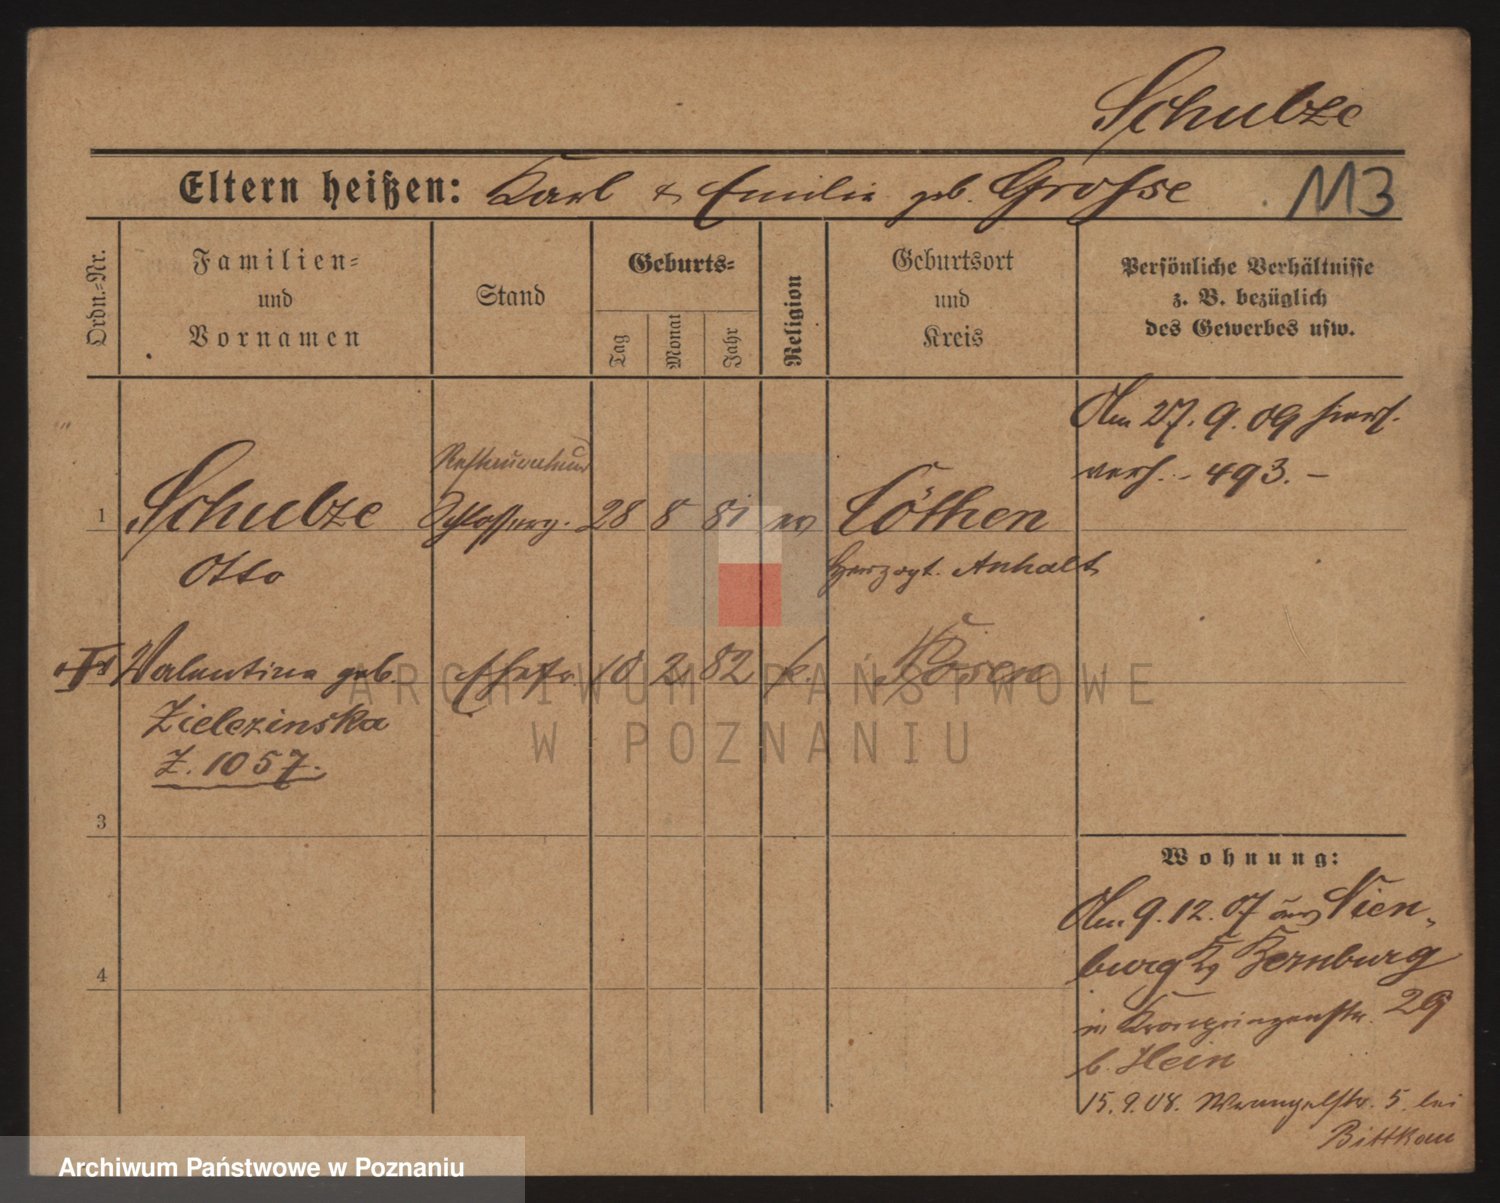 Schulze
Eltern heißen: Karl & Emilie geb. Grosse
113
Ordn.-Nr.
Familien-
und
Vornamen
Stand
Geburts-
Tag
Monat
Jahr
Religion
Geburtsort
und
Kreis
Persönliche Verhältnisse
z. B. bezüglich
des Gewerbes usw.
Am 27. 9. 09
493. –
Restaurateur
1 Schulze Schlosserg. 28 8 81 ev Cöthen
Otto Herzogt. Anhalt
Valentine geb. Ehefr. 10 2 82 k. Posen
Zielezinska
Z. 1057.
3
4
Wohnung:
Am 9. 12. 07 aus Nien-
burg Kr Bernburg
in Kronprinzenstr. 29
b. Hein
15. 9. 08. Wrangelstr. 5. bei
Bittkau
ARCHIWUM PAŃSTWOWE
W POZNANIU
Archiwum Państwowe w Poznaniu